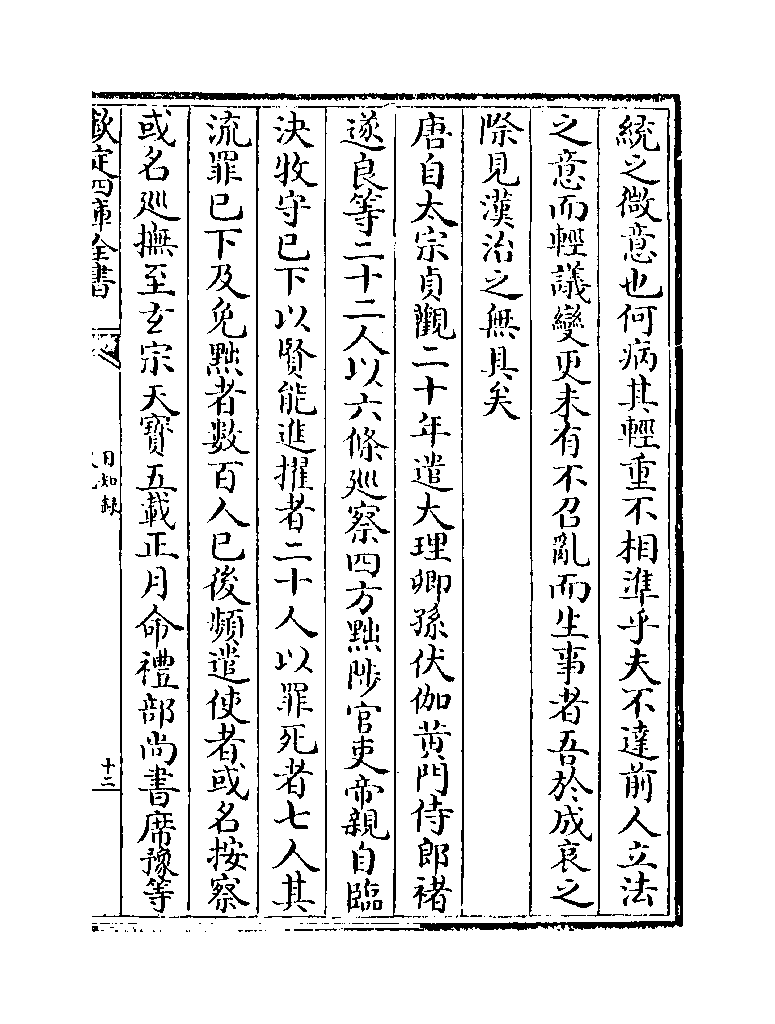 統之微意也何病其輕重不相準乎夫不達前人立法
之意而輕議變更未有不召亂而生事者吾於成哀之
際見漢治之無具矣
唐自太宗貞觀二十年遣大理卿孫伏伽黄門侍郎褚
遂良等二十二人以六條廵察四方黜陟官吏帝親自臨
決牧守已下以賢能進擢者二十人以罪死者七人其
流罪已下及免黜者數百人已後頻遣使者或名按察
或名廵撫至玄宗天寶五載正月命禮部尚書席豫等
欽定四庫全書
日知録
十二